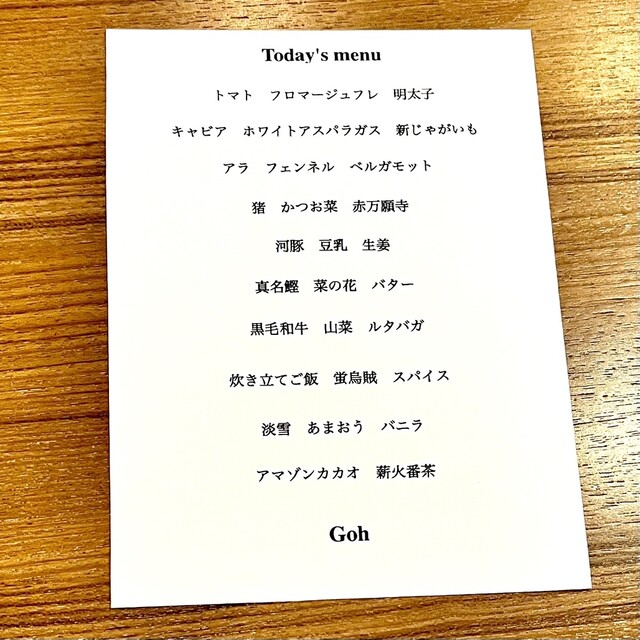 Today's menu
トマト　フロマージュフレ　明太子
キャビア　ホワイトアスパラガス　新じゃがいも
アラ　フェンネル　ベルガモット
猪　かつお菜　赤万願寺
河豚　豆乳　生姜
真名鰹　菜の花　バター
黒毛和牛　山菜　ルタバガ
炊き立てご飯　蛍烏賊　スパイス
淡雪　あまおう　バニラ
アマゾンカカオ　薪火番茶
Goh